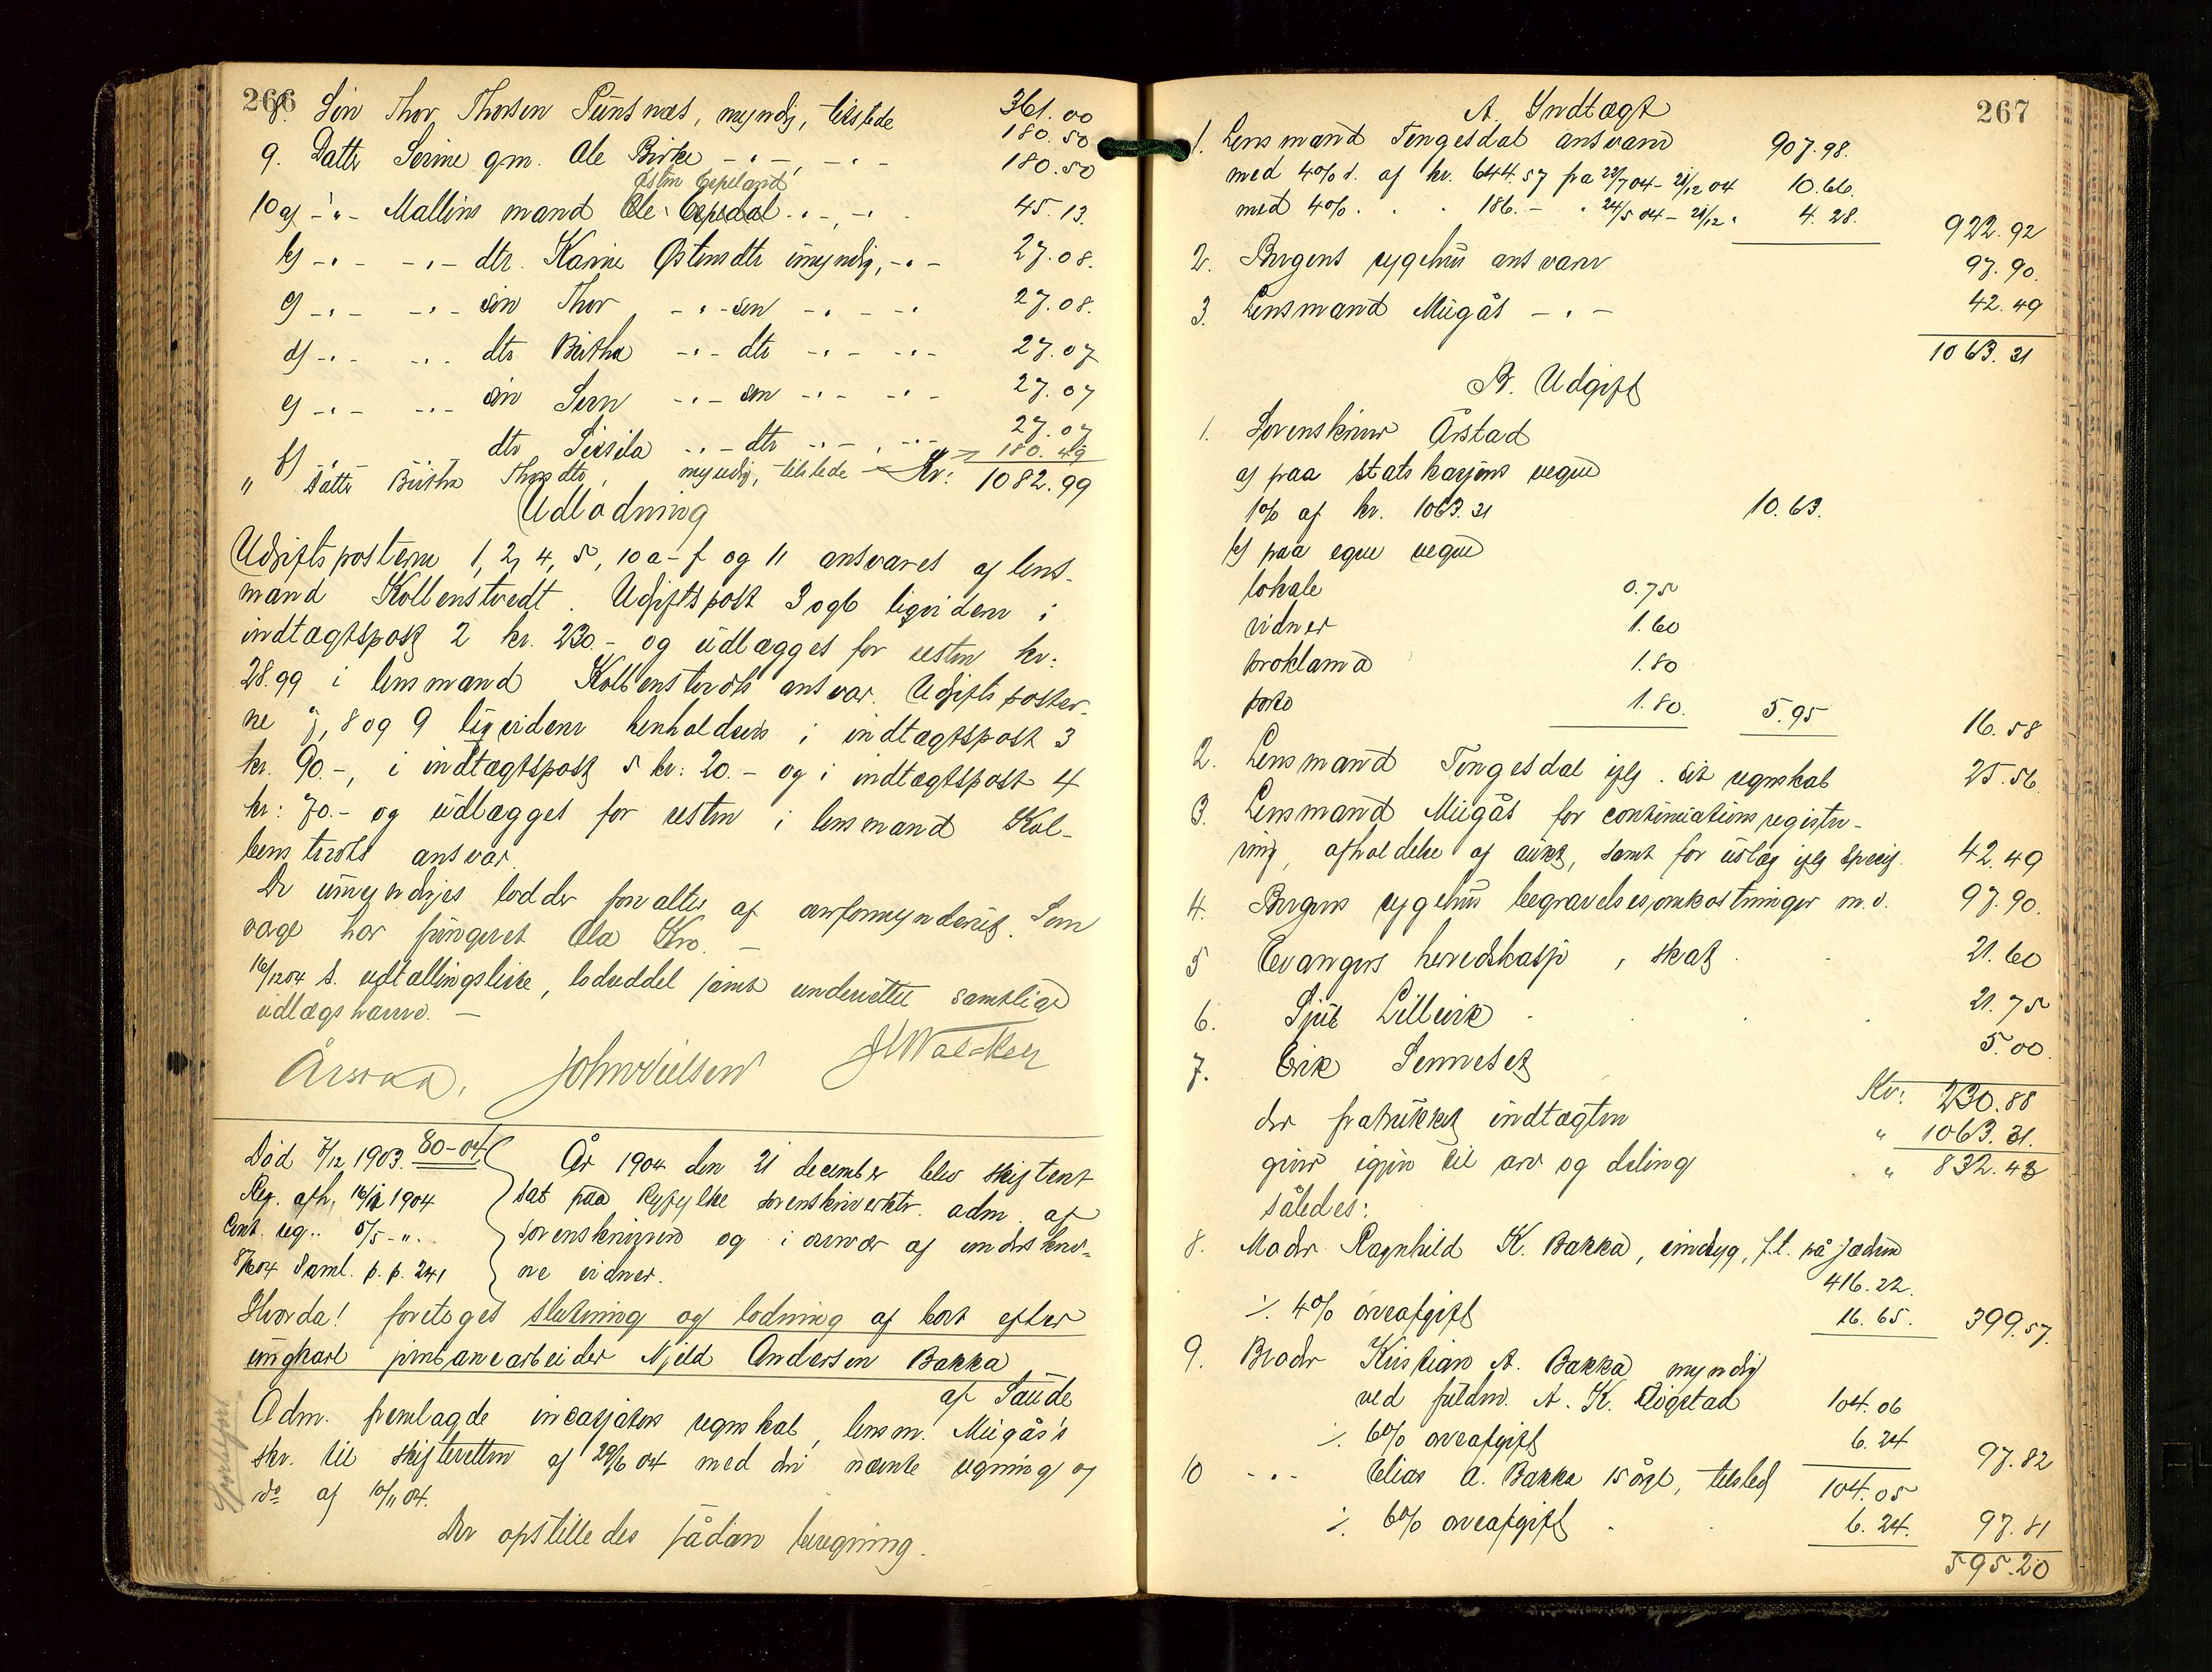 266
8. Søn Thor Thorsen Sunsnæs, myndig, tilstede 361.00
180.50
9. Datter Serine gm. Ole Birke -"-, -"- 180.50
Østen Espeland
10 a) -"- Mallins mand Ole Espedal -"-, -"- 45.13.
b) -"- -"- dtr. Karine Østensdtr umyndig, -"- 27.08.
c) -"- -"- søn Thor -"- sen -"- -"- 27.08.
d) -"- -"- dtr Birtha -"- dtr -"- -"- 27.07
e) -"- -"- søn Sven -"- sen -"- -"- 27.07
f) " dtr Sissila -"- dtr -"- -"- 27.07
" 180.49
" Datter Birtha Thorsdtr, myndig, tilstede Kr: 1082.99
Udlodning
Udgiftsposterne 1, 2, 4, 5, 10 a-f og 11 ansvares af lens-
mand Kolbenstvedt. Udgiftspost 3 og 6 ligviderer i
indtægtspost 2 kr. 230.- og udlægges for resten kr:
28.99 i lensmand Kolbenstvedts ansvar. Udgiftsposter-
ne 7, 8 og 9 ligviderer henholdsvis i indtægtspost 3
kr. 90.-, i indtægtspost 5 kr: 20.- og i indtægtspost 4
kr: 70.- og udlægges for resten i lensmand Kol-
benstvedts ansvar.
De umyndiges lodder forvaltes af overformynderiet. Som
værge har fungeret Ola Kro. -
16/12 04 s. udtællingsliste, lodseddel samt underrettet samtlige
udlægshavere. -
Årstad, John Nielsen J Walcker
Død 7/12 1903. 80-04
Reg. afh. 16/1 1904
Cont. reg. " 5/5 -"-.
8/6 04 Saml. p. p. 241
År 1904 den 21 december blev skifteret
sat paa Ryfylke sorenskriverktr. adm. af
sorenskriveren og i overvær af underskrev-
ne vidner.
Hvorda! foretoges slutning og lodning af boet efter
ungkarl jernbanearbeider Njeld Andersen Bakka
af Saude
Adm. fremlagde incassators regnskab, lensm. Mügås's
skr. til skifteretten af 29/6 04 med den nævnte regning og
do af 10/11 04.
Der opstilledes sådan beregning.
267
A. Indtægt
1. Lensmand Tengesdal ansvarer 907.98.
med 4% r. af kr. 644.57 fra 22/7 04 - 21/12 04 10.66.
med 4% " " 186.- " 24/5 04 - 21/12 " 4.28. 922.92
2. Bergens sygehus ansvarer 97.90.
3. Lensmand Mügås -"- 42.49
1063.31
B. Udgift
1. Sorenskriver Årstad
a) paa statskassens vegne
1% af kr. 1063.31 10.63.
b) paa egne vegne
lokale 0.75
vidner 1.60
proklama 1.80
porto 1.80. 5.95 16.58
2. Lensmand Tengesdal iflg. sit regnskab 25.56
3. Lensmand Mügås for continuationsregistre-
ring, afholdelse af aukt, samt for udlæg iflg specif. 42.49
4. Bergens sygehus begravelsesomkostninger m.v. 97.90.
5 Evangers herredskasse, skat 21.60
6. Sjur Lillevik 21.75
7. Erik Semeset 5.00.
Kr: 230.88
der fratrukket indtægten " 1063.31.
giver igjen til arv og deling " 832.43
således:
8. Moder Ragnhild K. Bakka, f.t. på Jæderen
416.22.
÷ 4% arveafgift 16.65. 399.57.
9. Broder Kristian A. Bakka, myndig
ved fuldm. A. K. Løgstad 104.06
÷ 6% arveafgift 6.24 97.82
10 -"- Elias A. Bakka 15 årgl, tilsted 104.05
÷ 6% arveafgift 6.24. 97.81
595.20